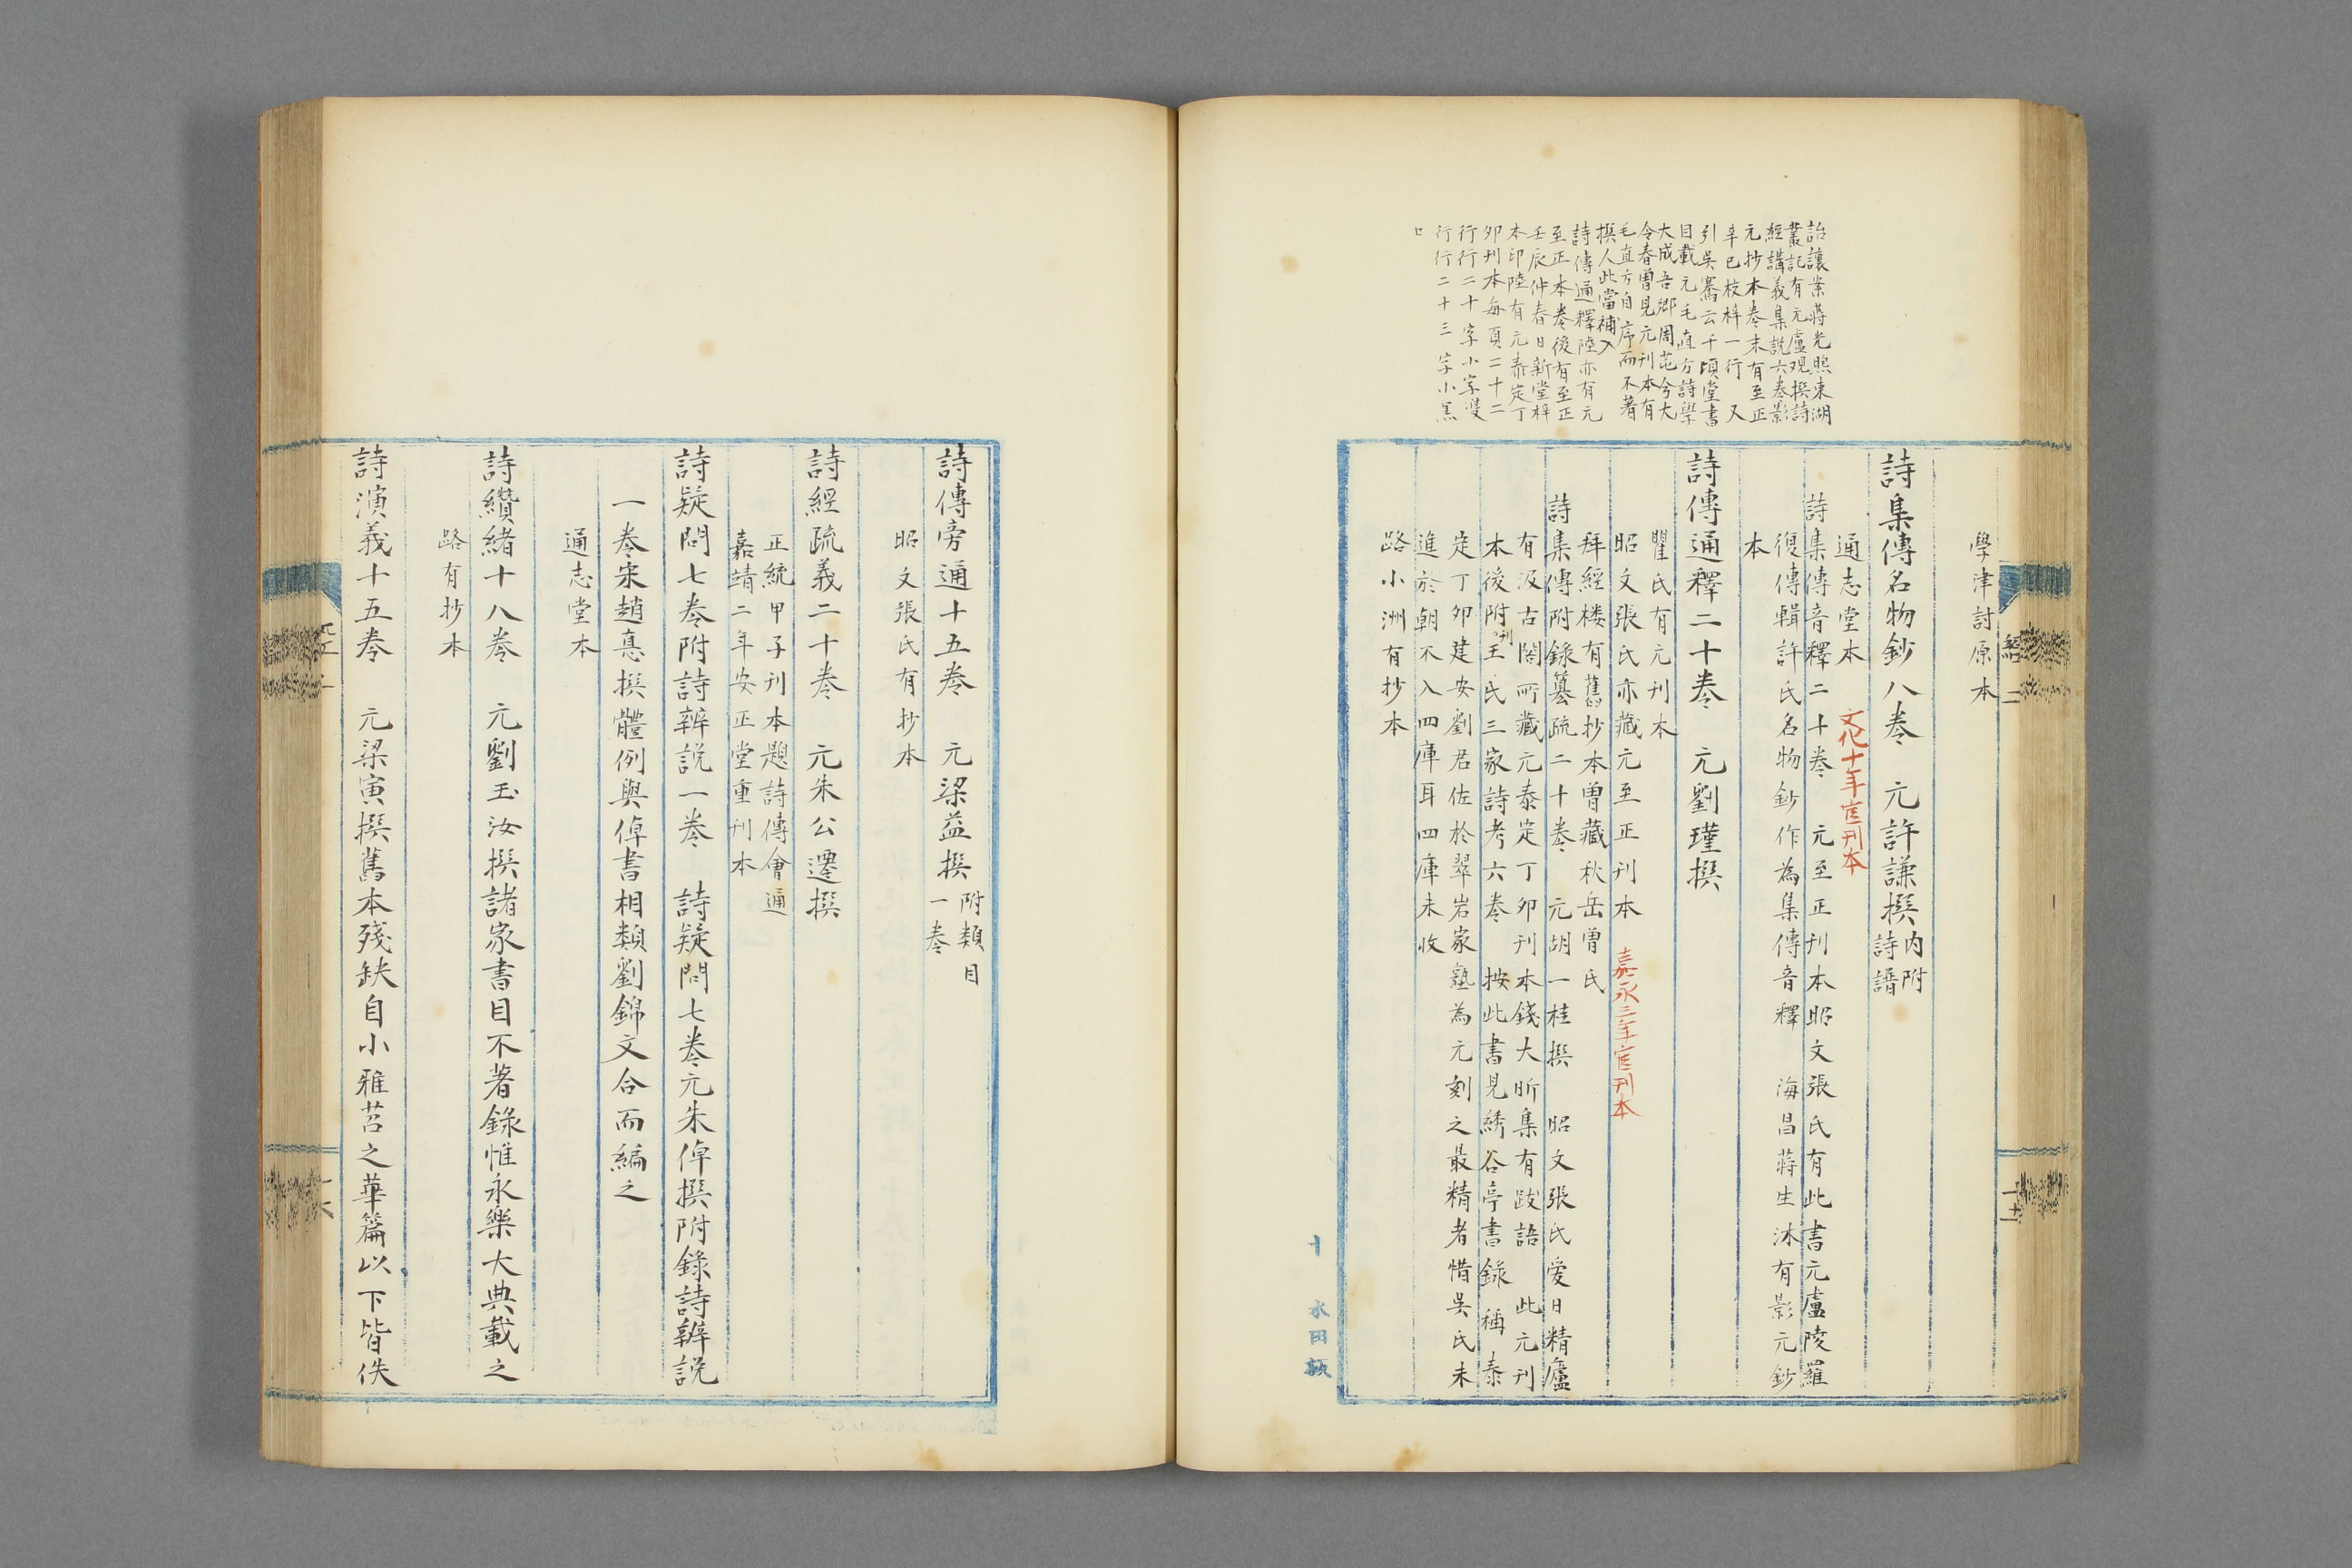 詒讓案蔣光煦東湖
叢記有元盧觀撰詩
經講義集說六卷影
元抄本卷末有至正
辛巳校梓一行 又
引吳騫云千頃堂書
目載元毛直方詩學
大成吾鄉周芚兮大
令春曽見元刊本有
毛直方自序而不著
撰人此當補入
詩傳通釋陸亦有元
至正本卷後有至正
壬辰仲春日新堂梓
本印陸有元泰定丁
夘刊本每頁二十二
行行二十字小字雙
行行二十三字小黑
口
學津討原本
詩集傳名物鈔八卷 元許謙撰
内附
詩譜
通志堂本
文化十年官刊本
詩集傳音釋二十卷 元至正刊本昭文張氏有此書元廬陵羅
復傳輯許氏名物鈔作為集傳音釋 海昌蔣生沐有影元鈔
本
詩傳通釋二十卷 元劉瑾撰
瞿氏有元刊本
昭文張氏亦藏元至正刊本
嘉永三年官刊本
拜經楼有舊抄本曽藏秋岳曽氏
詩集傳附錄纂疏二十卷 元胡一桂撰 昭文張氏愛日精廬
有汲古閣所藏元泰定丁卯刊本錢大昕集有跋語 此元刊
本後附刊王氏三家詩考六卷 按此書見綉谷亭書錄稱泰
定丁夘建安劉君佐於翠岩家塾為元刻之最精者惜吳氏未
進於朝不入四庫耳四庫未收
路小洲有抄本
經 二
十 永田板
詩傳旁通十五卷 元梁益撰
附類目
一卷
昭文張氏有抄本
詩經疏義二十卷 元朱公遷撰
正統甲子刊本題詩傳會通
嘉靖二年安正堂重刊本
詩疑問七卷附詩辨說一卷 詩疑問七卷元朱倬撰附錄詩辨説
一卷宋趙惪撰體例與倬書相類劉錦文合而編之
通志堂本
詩纉緒十八卷 元劉玉汝撰諸家書目不著錄惟永樂大典載之
路有抄本
詩演義十五卷 元梁寅撰舊本殘缺自小雅苕之華篇以下皆佚